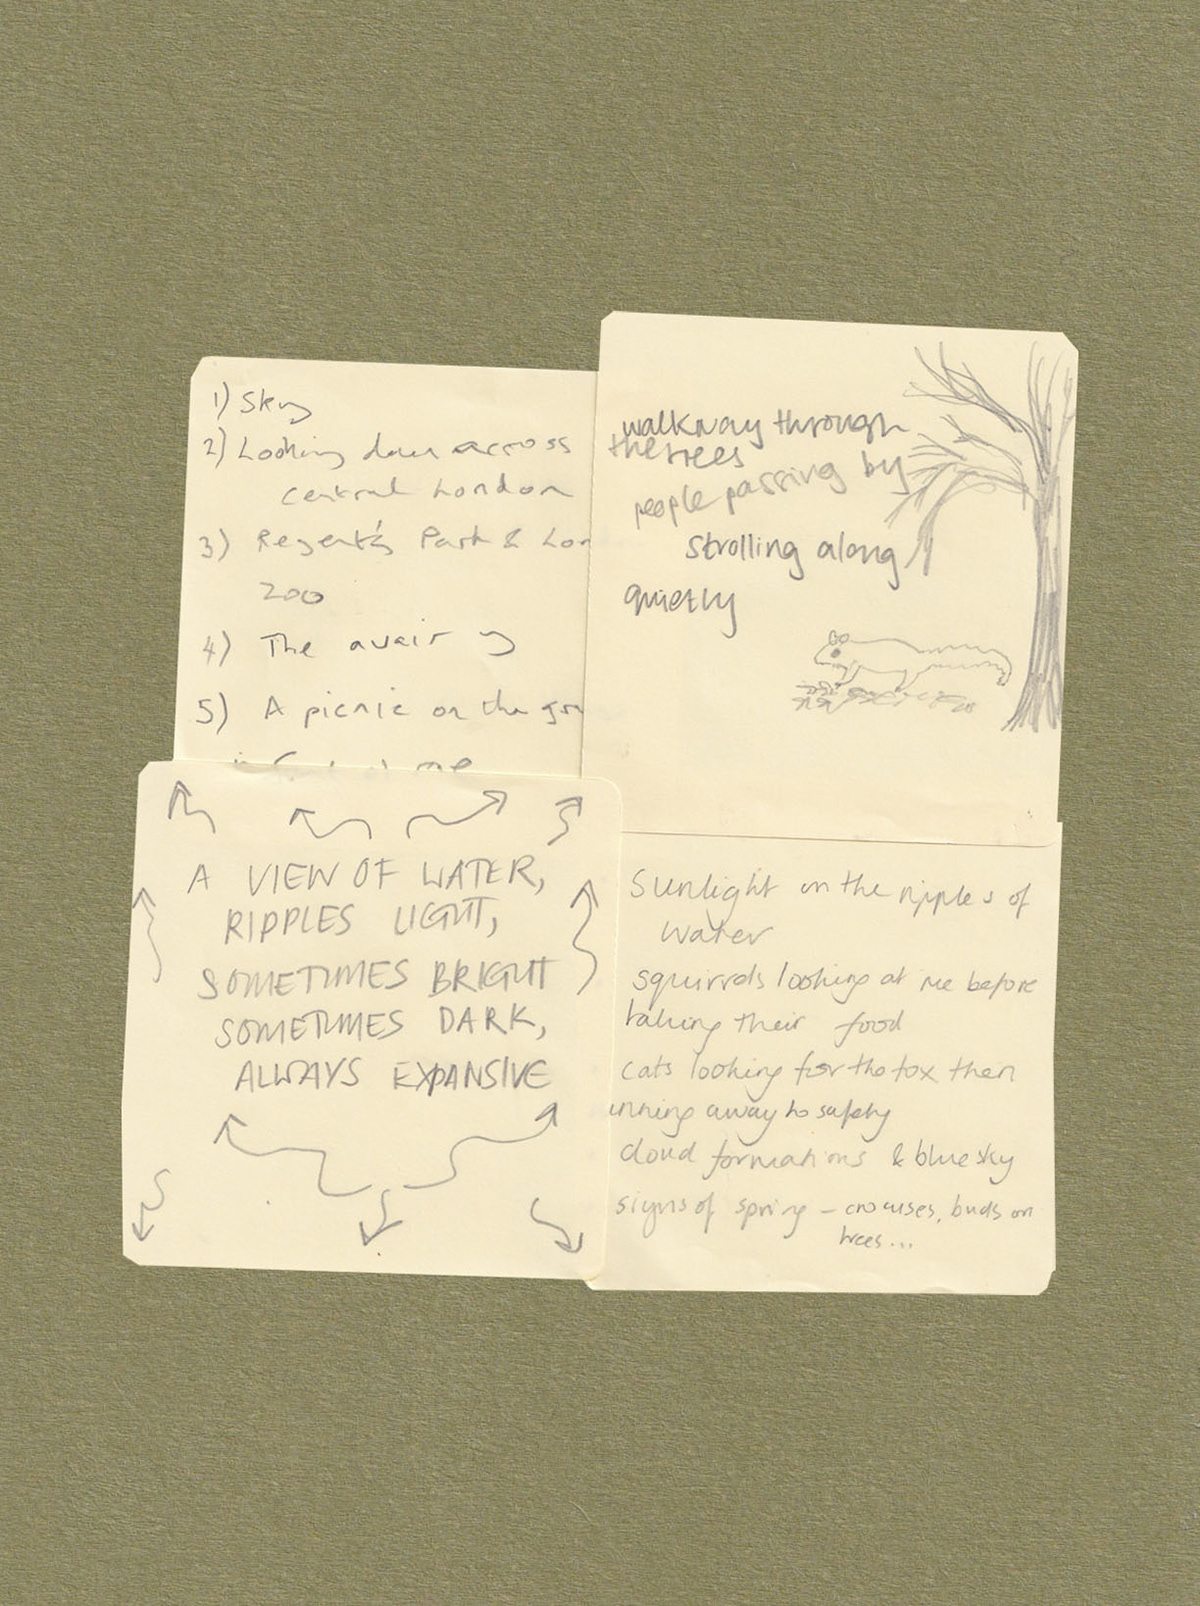 1) Sky
2) Looking down across
central London
3) Regent's Park & Lon
zoo
4) The avairy
5) A picnic on the
me
walkway through
the trees
people passing by
strolling along
quietly
A VIEW OF WATER,
RIPPLES LIGHT,
SOMETIMES BRIGHT
SOMETIMES DARK,
ALWAYS EXPANSIVE
Sunlight on the ripples of
water
squirrels looking at me before
taking their food
cats looking for the fox then
unning away to safety
cloud formations & blue sky
signs of spring – crocuses, buds on
trees...